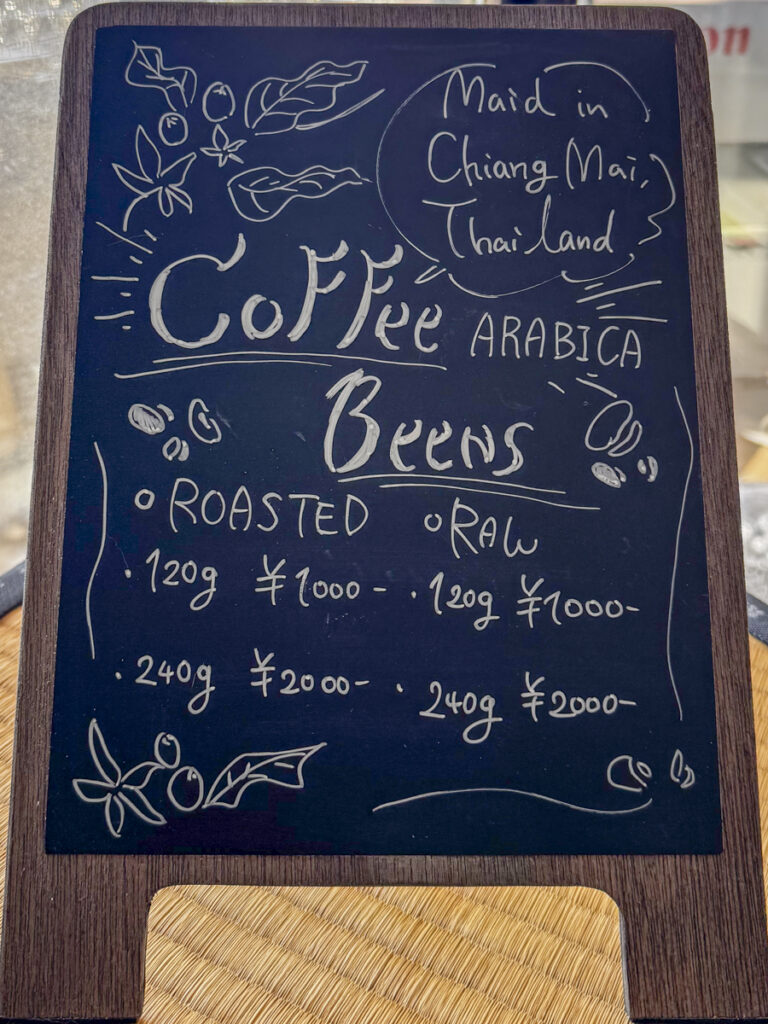 Maid in
Chiang Mai,
Thailand
Coffee ARABICA
Beens
ROASTED
・120g ¥1000-
・240g ¥2000-
RAW
・120g ¥1000-
・240g ¥2000-